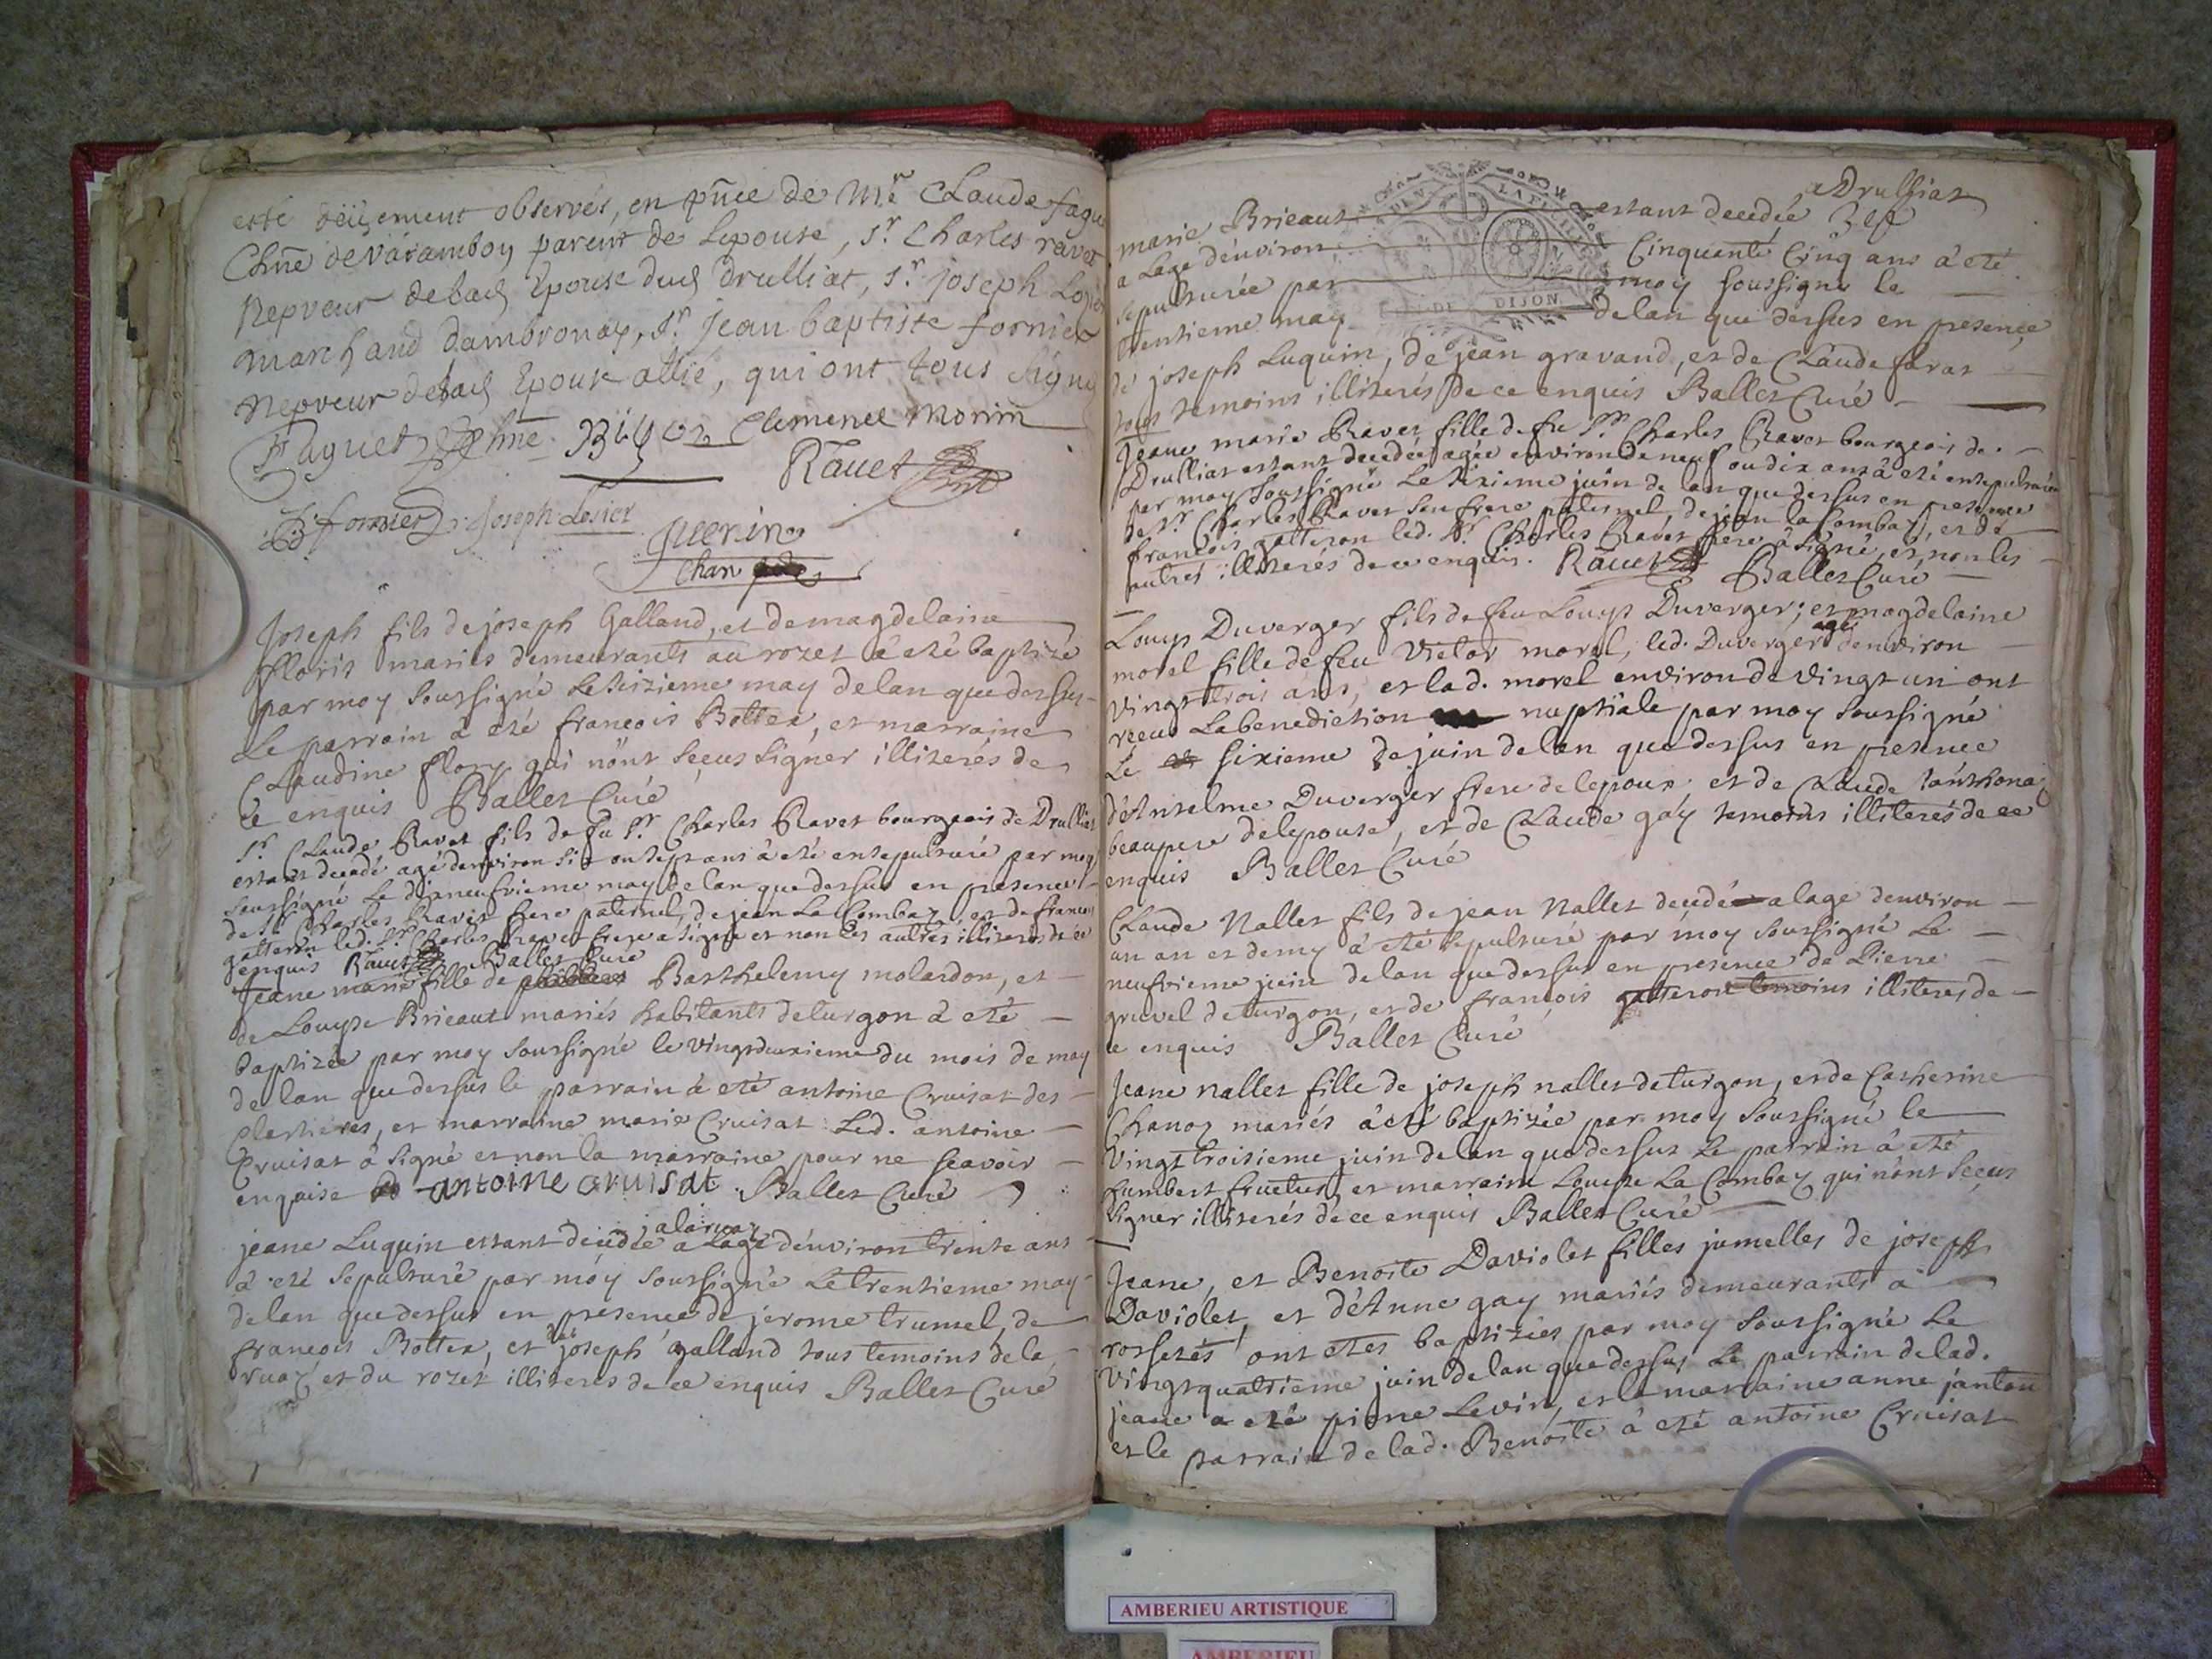 esté deüement observés, en pñce de Mre Claude fague
Chñe de Varamboy parent de Lepouse, sr. Charles ravet
Nepveur de lad Epouse dud drulliat, sr. joseph Losier
marchand dambronay, sr jean baptiste fornier
Nepveur de lad Epouse allié, qui ont tous signé
Faguet Chne. Clemence Morin
Ravet
JB fornier joseph Losier
Guerin
Chan
Joseph fils de joseph Galland, et de magdelaine
floris mariés demeurants au rozet à eté baptizé
par moy soussigné le seizieme may de lan que dessus
Le parrain à eté francois Botter, et marraine
Claudine flory qui nont sceus signer illiterés de
ce enquis Ballet Curé
Sr. Claude Ravet fils de fu Sr. Charles Ravet bourgeois de Drulliat
estant decedé agé denviron six ou sept ans à eté ensepulturé par moy
soussigné le dixneufvieme may de lan que dessus en presence
de Sr. Charles Ravet frere paternel, de jean La Combaz, et de francois
galleron led. Sr. Charles Ravet frere a signé et non les autres illiterés de ce
enquis Ravet Ballet Curé
Jeane marie fille de Barthelemy molardon, et
de Louyse Brieaut mariés habitants de turgon à eté
baptizée par moy soussigné le vingtdeuxieme du mois de may
de lan que dessus le parrain à eté antoine Cruisat des
plastieres, et marraine marie Cruisat Led. antoine
Cruisat à signé et non la marraine pour ne sçavoir
enquise antoine cruisat Ballet Curé
jalaruaz
jeane Luquin estant decedée a Lage denviron trente ans
à eté sepulturé par moy soussigné Le trentieme may
de lan que dessus en presence de jerome trumel, de
francois Botter, et de joseph galland tous temoins de la
ruaz et du rozet illiterés de ce enquis Ballet Curé
a Drulliat
marie Brieaut estant decedée
a Lage denviron Cinquante Cinq ans à eté
sepulturée par moy soussigné le
trentieme may DE DIJON de lan que dessus en presence
de joseph Luquin, de jean gravand, et de Claude faras
tous temoins illiterés de ce enquis Ballet Curé
Jeane marie Ravet fille de fu Sr. Charles Ravet bourgeois de
Drulliat estant decedée agée environ de neuf ou dix ans à eté ensepulturée
par moy soussigné Le sixieme juin de lan que dessus en presence
de Sr. Charles Ravet son frere paternel, de jean la Combaz, et de
francois galleron led. Sr. Charles Ravet frere à signé, et non les
autres illiterés de ce enquis. Ravet Ballet Curé
Louys Duverger fils de feu Louys Duverger; et magdelaine
morel fille de feu Victor morel, led. Duverger agé denviron
vingt trois ans, et lad. morel environ de vingt un ont
receu La benediction nuptiale par moy soussigné
Le sixieme de juin de lan que dessus en presence
dAnselme Duverger frere de lepoux et de Claude
beaupere de lepouse, et de Claude gay temoins illiterés de ce
enquis Ballet Curé
Claude Nallet fils de jean Nallet decedé a lage denviron
un an et demy à eté sepulturé par moy soussigné Le
neufvieme juin de lan que dessus en presence de Pierre
gruvel de turgon, et de francois galleron temoins illiteres de
ce enquis Ballet Curé
Jeane nallet fille de joseph nallet de turgon, et de Catherine
Chanoz mariés à eté baptizée par moy soussigné le
Vingt troisieme juin de lan que dessus Le parrain à eté
humbert fruetus, et marraine Louyse La Combaz qui nont sceus
signer illiterés de ce enquis Ballet Curé
Jeane, et Benoite Daviolet filles jumelles de joseph
Daviolet, et dAnne gay mariés demeurants à
rossetes ont etés baptizées par moy soussigné Le
Vingtquatrieme juin de lan que dessus Le parrain de lad.
jeane a eté pierre Levin, et la marraine anne janton
et le parrain de lad. Benoite à eté antoine Cruisat
AMBERIEU ARTISTIQUE
AMBERIEU